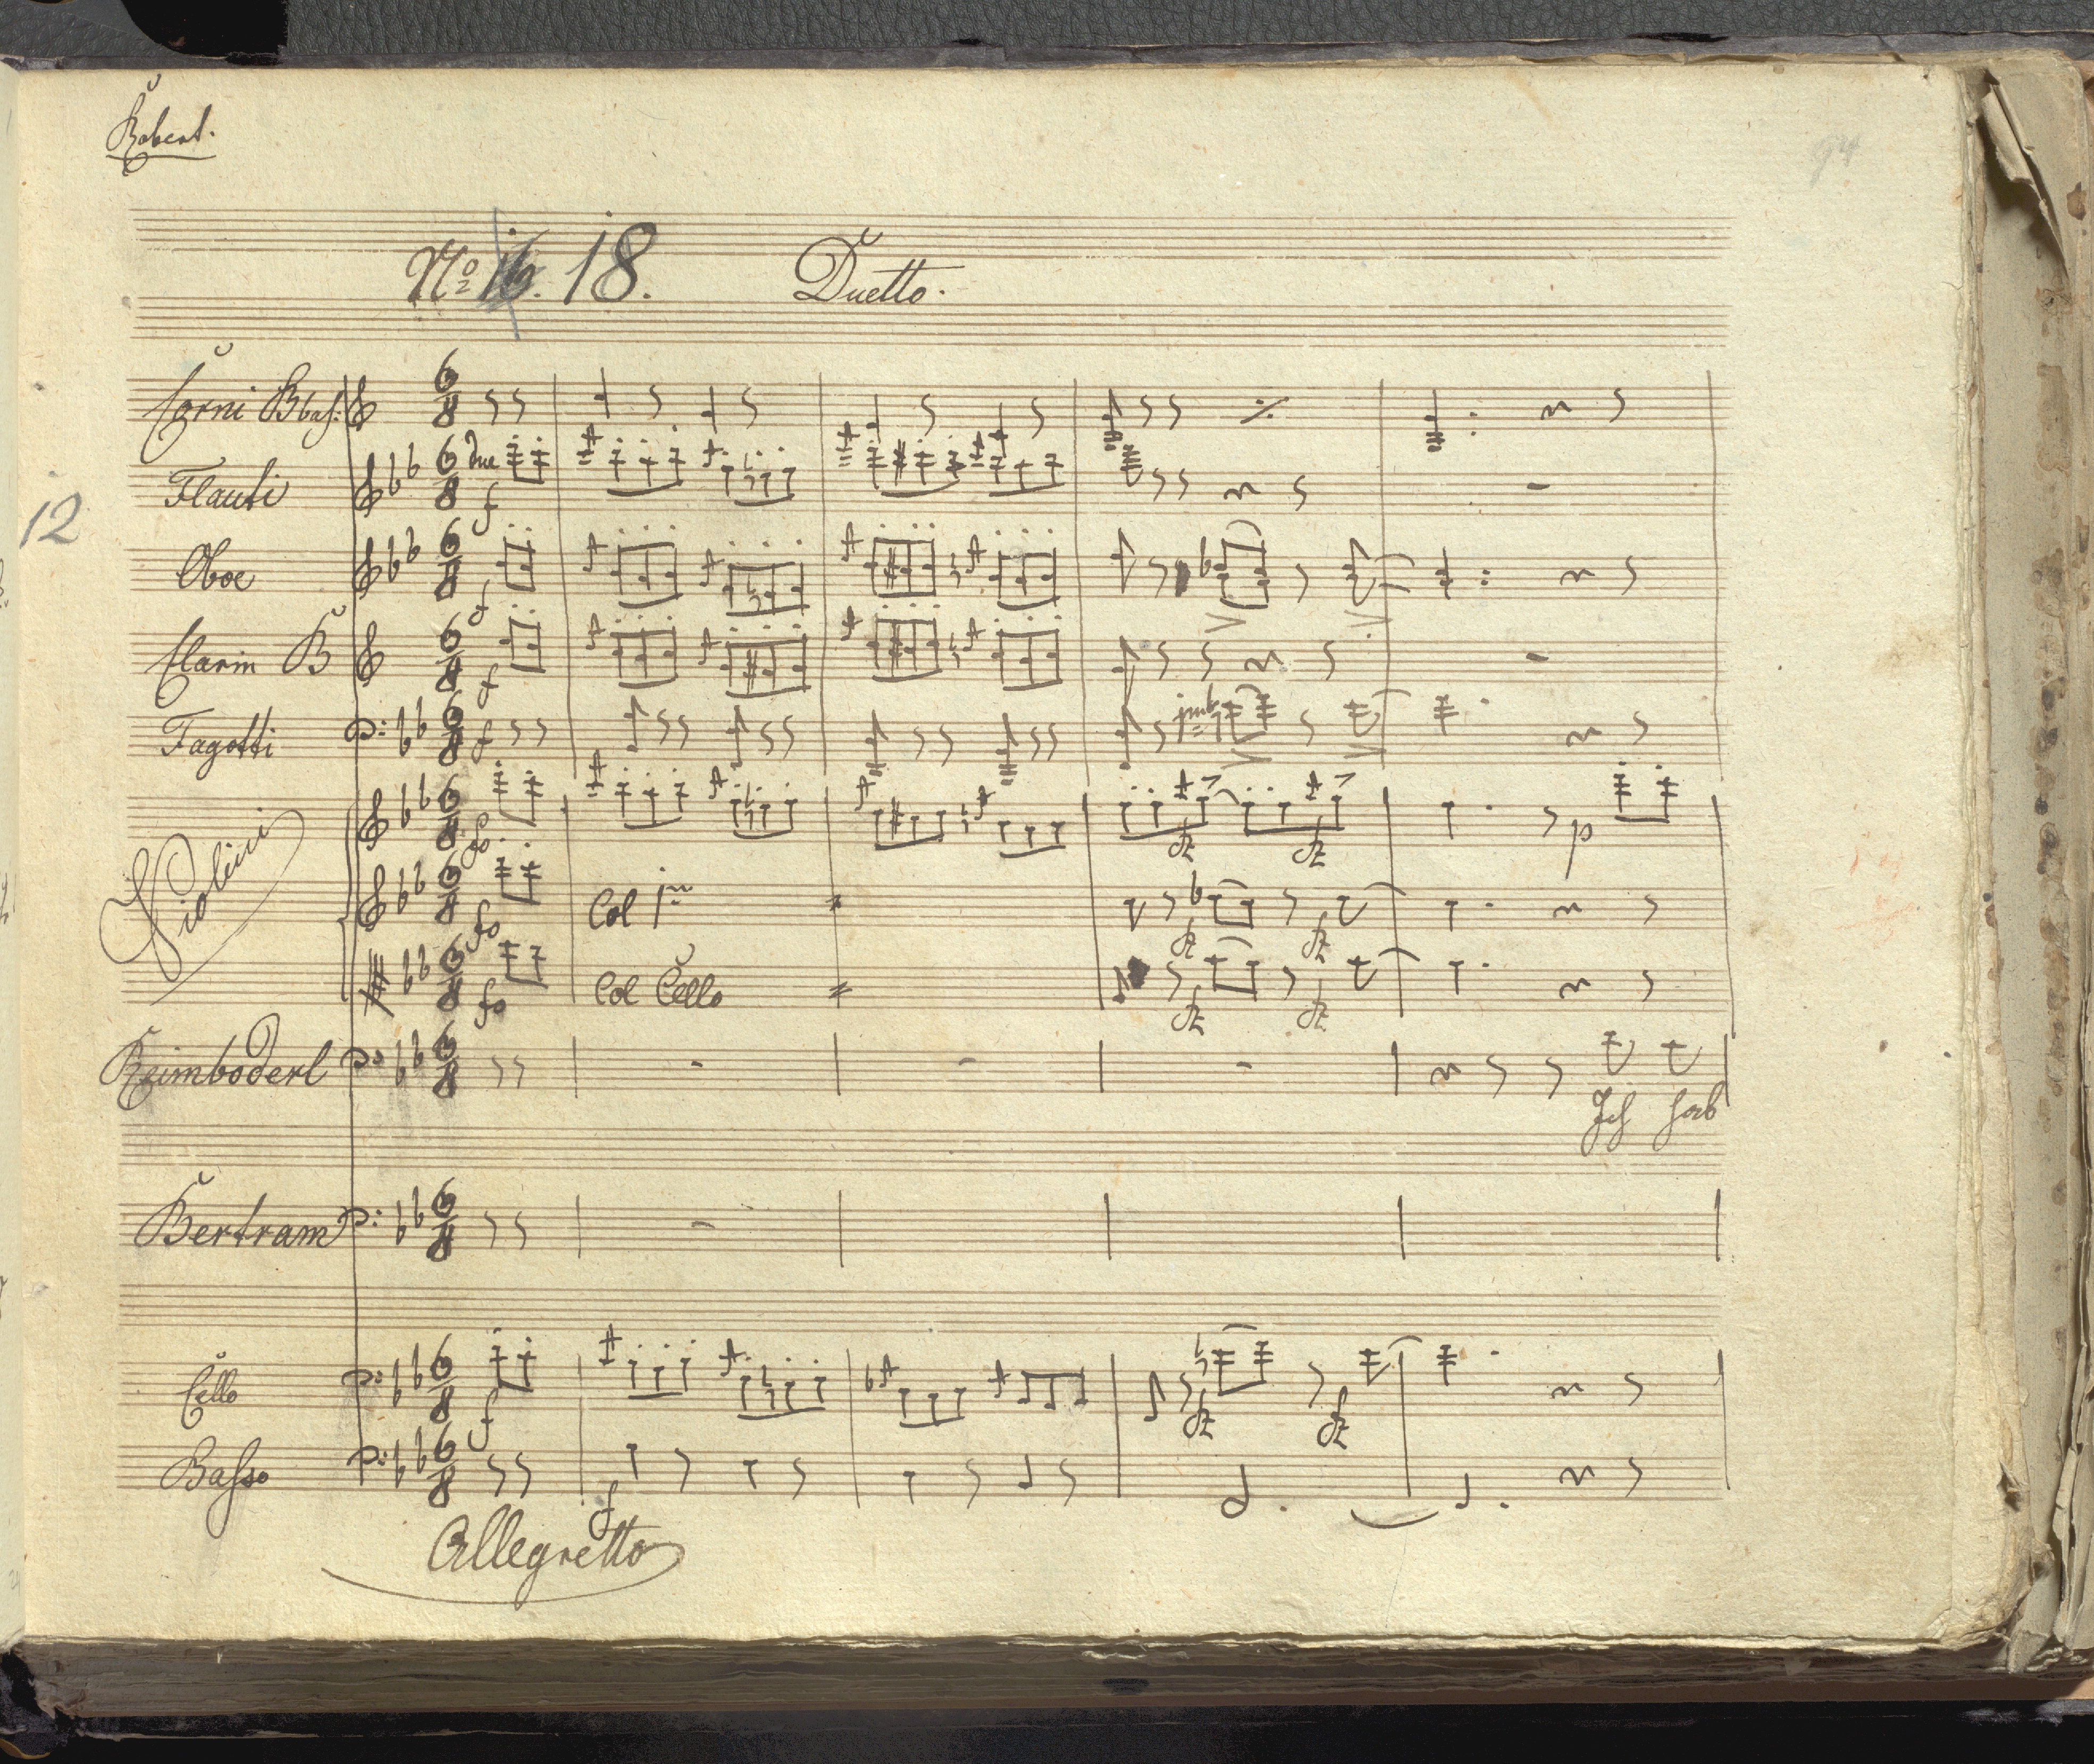 Robert.
94
No 16. 18. Duetto.
Corni B bas:
Flauti due f
12
Oboe f
Clarin B f
Fagotti f
Violini fo p
fz fz
fo Col 1mo fz fz
fo Col Cello fz fz
Reimboderl
Ich hab
Bertram
Cello f fz fz
Basso f
Allegretto